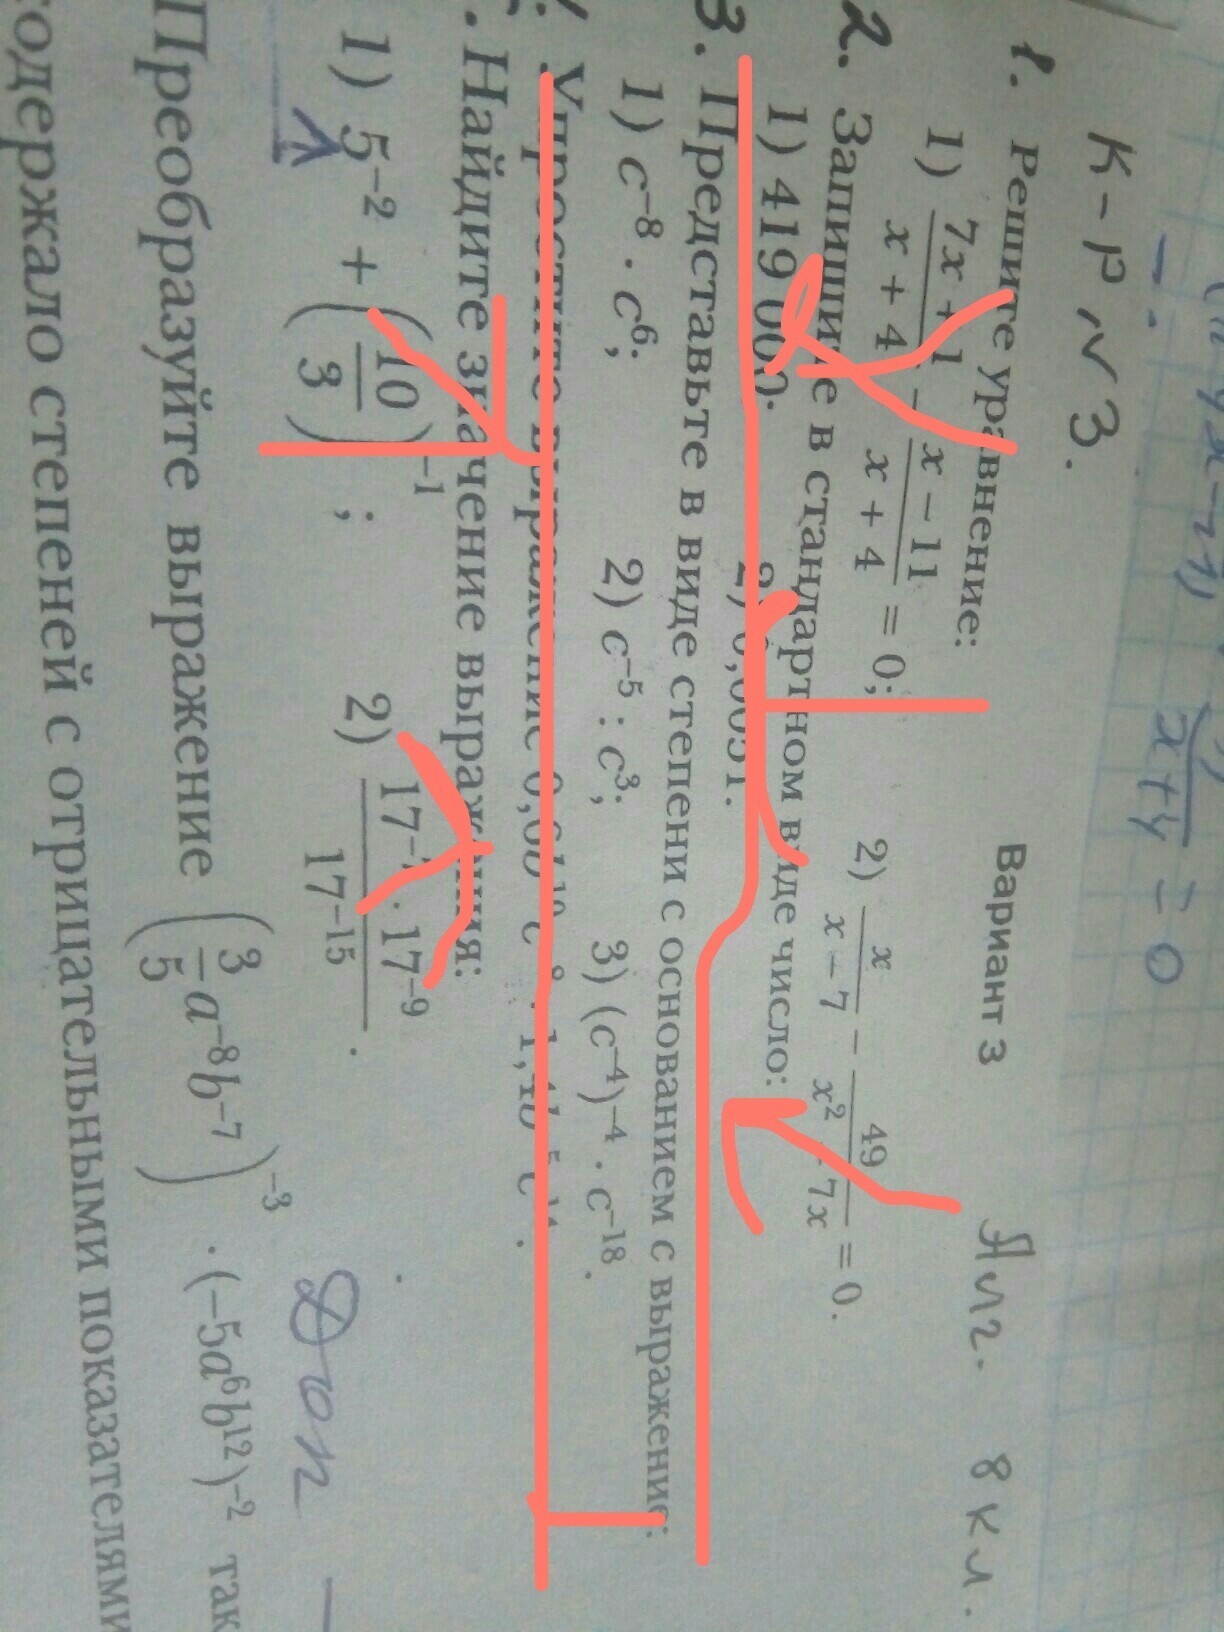 x+y = 0
К-р №3.
Вариант 3 Алг. 8 кл.
1. Решите уравнение:
1) (7x + 1)/(x + 4) − (x − 11)/(x + 4) = 0; 2) x/(x − 7) − 49/(x² − 7x) = 0.
2. Запишите в стандартном виде число:
1) 419 000;
3. Представьте в виде степени с основанием c выражение:
1) c⁻⁸ · c⁶; 2) c⁻⁵ : c³; 3) (c⁻⁴)⁻⁴ · c⁻¹⁸.
Упростите выражение
Найдите значение выражения:
1) 5⁻² + (10/3)⁻¹; 2)
Доп
Преобразуйте выражение (3/5 a⁻⁸b⁻⁷)⁻³ · (−5a⁶b¹²)⁻² так
содержало степеней с отрицательными показателями